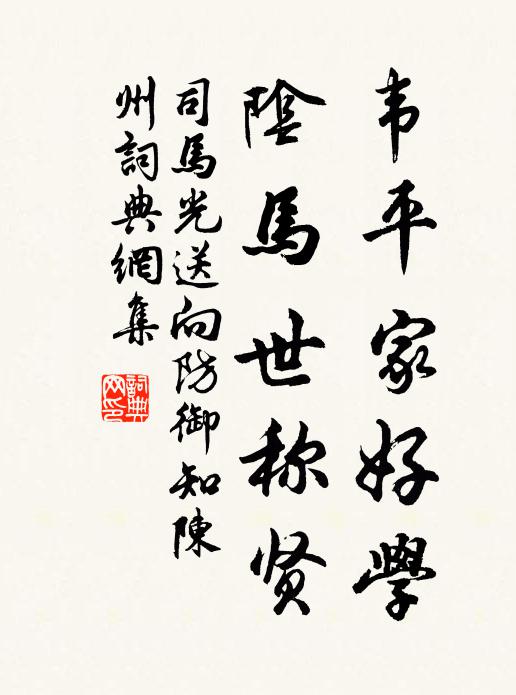 韦平家好學
陰馬世称贤
司馬光送向防御知陳
州詞典網集
詞典
网印